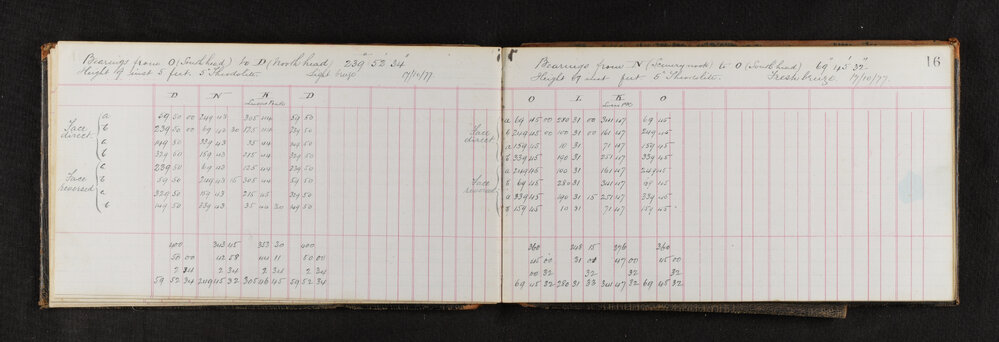 Bearings from O (South head) to D (North head) 239° 52' 34"
Height of inst 5 feet. 5" Theodolite. Light 17/10/77.
D N K D
a 59 50 00 249 43 305 44 59 50
Face direct b 239 50 00 69 40 30 125 44 239 50
a 149 50 339 43 35 44 149 50
b 159 43 215 44
c 239 50 69 43 125 44 239 50
Face reversed b 59 50 249 43 15 305 44 59 50
a 329 50 159 43 215 45 329 50
b 149 50 339 43 35 44 30 149 50
400 343 45 353 30 400
50 00 42 58 44 11 50 00
2 34 2 34 2 34 2 34
59 52 34 249 45 32 305 46 45 59 52 34
16
Bearings from N to O (South head) 69° 45' 32"
Height of inst feet 5" Theodolite. Fresh 17/10/77.
O L K O
a 69 45 00 280 31 00 341 47 69 45
Face direct b 249 45 00 100 31 00 161 47 249 45
a 159 45 10 31 71 47 159 45
b 339 45 190 31 251 47 339 45
a 249 45 100 31 161 47 249 45
Face reversed b 69 45 280 31 341 47 69 45
a 339 45 190 31 15 251 47 339 45
b 159 45 10 31 71 47 159 45
360 248 15 376 360
45 00 31 01 47 00 45 00
00 32 32 32 32
69 45 32 280 31 33 341 47 32 69 45 32